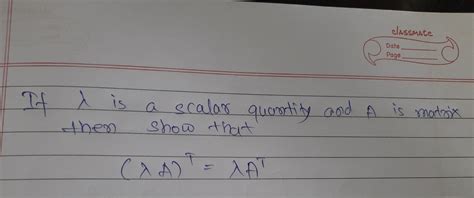 classmate
Date
Page
If λ is a scalar quantity and A is matrix
then show that
(λA)ᵀ = λAᵀ